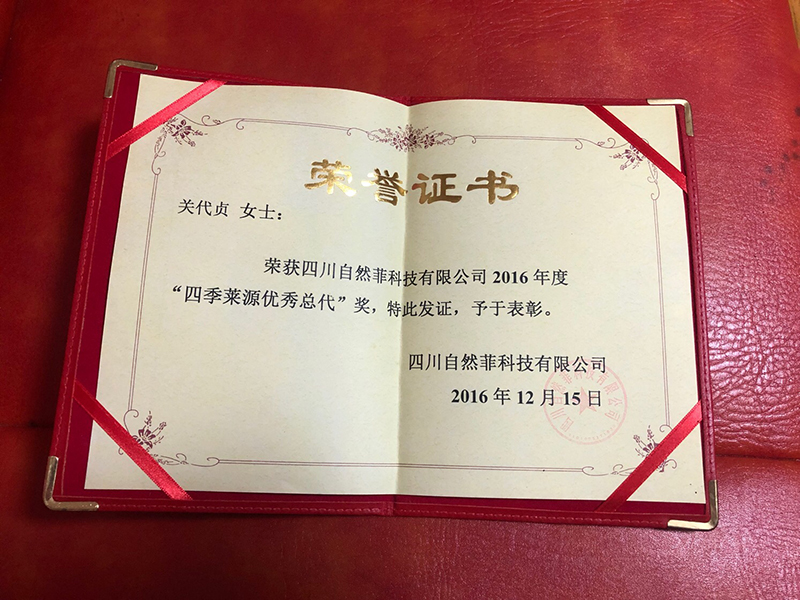 荣誉证书
关代贞 女士：
荣获四川自然菲科技有限公司 2016 年度
“四季莱源优秀总代”奖，特此发证，予于表彰。
四川自然菲科技有限公司
2016 年 12 月 15 日